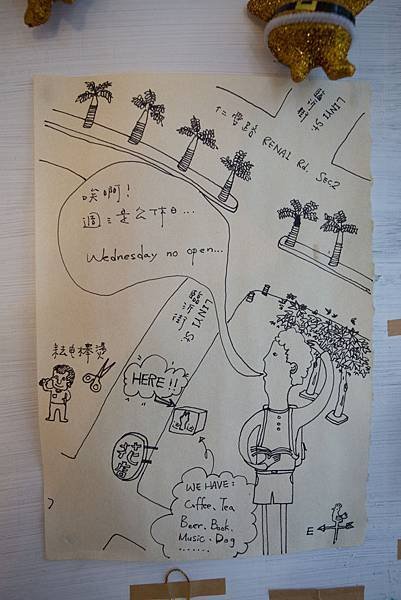 LINYI St.
臨沂街
仁愛路 RENAI Rd. Sec2
唉啊!
週三是公休日...
Wednesday no open...
LINYI St
臨沂街
HERE!!
WE HAVE:
Coffee. Tea
Beer. Book.
Music. Dog
.......
E